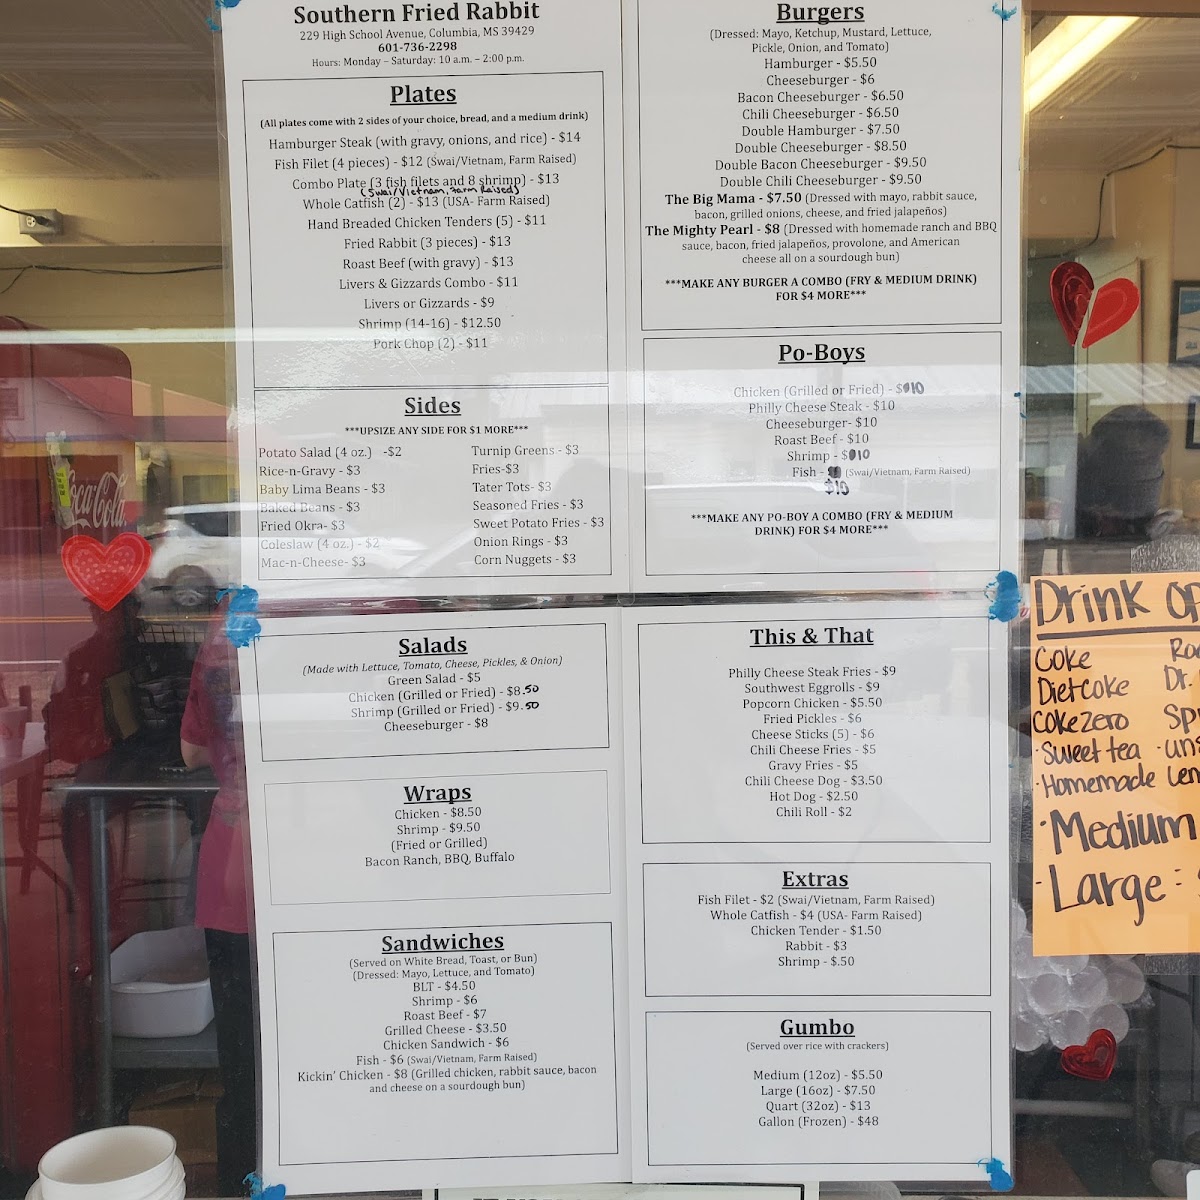 Southern Fried Rabbit
229 High School Avenue, Columbia, MS 39429
601-736-2298
Hours: Monday – Saturday: 10 a.m. – 2:00 p.m.
Plates
(All plates come with 2 sides of your choice, bread, and a medium drink)
Hamburger Steak (with gravy, onions, and rice) - $14
Fish Filet (4 pieces) - $12 (Swai/Vietnam, Farm Raised)
Combo Plate (3 fish filets and 8 shrimp) - $13
(Swai/Vietnam, Farm Raised)
Whole Catfish (2) - $13 (USA- Farm Raised)
Hand Breaded Chicken Tenders (5) - $11
Fried Rabbit (3 pieces) - $13
Roast Beef (with gravy) - $13
Livers & Gizzards Combo - $11
Livers or Gizzards - $9
Shrimp (14-16) - $12.50
Pork Chop (2) - $11
Sides
***UPSIZE ANY SIDE FOR $1 MORE***
Potato Salad (4 oz.) -$2
Rice-n-Gravy - $3
Baby Lima Beans - $3
Baked Beans - $3
Fried Okra- $3
Coleslaw (4 oz.) - $2
Mac-n-Cheese- $3
Turnip Greens - $3
Fries-$3
Tater Tots- $3
Seasoned Fries - $3
Sweet Potato Fries - $3
Onion Rings - $3
Corn Nuggets - $3
Burgers
(Dressed: Mayo, Ketchup, Mustard, Lettuce,
Pickle, Onion, and Tomato)
Hamburger - $5.50
Cheeseburger - $6
Bacon Cheeseburger - $6.50
Chili Cheeseburger - $6.50
Double Hamburger - $7.50
Double Cheeseburger - $8.50
Double Bacon Cheeseburger - $9.50
Double Chili Cheeseburger - $9.50
The Big Mama - $7.50 (Dressed with mayo, rabbit sauce,
bacon, grilled onions, cheese, and fried jalapeños)
The Mighty Pearl - $8 (Dressed with homemade ranch and BBQ
sauce, bacon, fried jalapeños, provolone, and American
cheese all on a sourdough bun)
***MAKE ANY BURGER A COMBO (FRY & MEDIUM DRINK)
FOR $4 MORE***
Po-Boys
Chicken (Grilled or Fried) - $10
Philly Cheese Steak - $10
Cheeseburger- $10
Roast Beef - $10
Shrimp - $10
Fish - (Swai/Vietnam, Farm Raised)
$10
***MAKE ANY PO-BOY A COMBO (FRY & MEDIUM
DRINK) FOR $4 MORE***
Salads
(Made with Lettuce, Tomato, Cheese, Pickles, & Onion)
Green Salad - $5
Chicken (Grilled or Fried) - $8.50
Shrimp (Grilled or Fried) - $9.50
Cheeseburger - $8
Wraps
Chicken - $8.50
Shrimp - $9.50
(Fried or Grilled)
Bacon Ranch, BBQ, Buffalo
Sandwiches
(Served on White Bread, Toast, or Bun)
(Dressed: Mayo, Lettuce, and Tomato)
BLT - $4.50
Shrimp - $6
Roast Beef - $7
Grilled Cheese - $3.50
Chicken Sandwich - $6
Fish - $6 (Swai/Vietnam, Farm Raised)
Kickin' Chicken - $8 (Grilled chicken, rabbit sauce, bacon
and cheese on a sourdough bun)
This & That
Philly Cheese Steak Fries - $9
Southwest Eggrolls - $9
Popcorn Chicken - $5.50
Fried Pickles - $6
Cheese Sticks (5) - $6
Chili Cheese Fries - $5
Gravy Fries - $5
Chili Cheese Dog - $3.50
Hot Dog - $2.50
Chili Roll - $2
Extras
Fish Filet - $2 (Swai/Vietnam, Farm Raised)
Whole Catfish - $4 (USA- Farm Raised)
Chicken Tender - $1.50
Rabbit - $3
Shrimp - $.50
Gumbo
(Served over rice with crackers)
Medium (12oz) - $5.50
Large (16oz) - $7.50
Quart (32oz) - $13
Gallon (Frozen) - $48
Drink
Coke
Diet Coke
Coke zero
Dr.
· Sweet tea
· Homemade
· Medium
· Large :
Coca-Cola